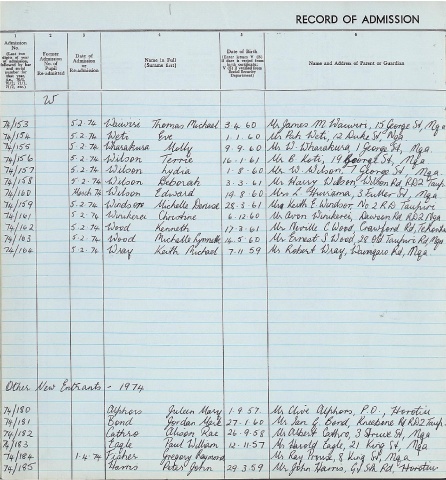 RECORD OF ADMISSION
1 2 3 4 5 6
Admission No.
Former Admission No. of Pupil Re-admitted
Date of Admission or Re-admission
Name in Full (Surname first)
Date of Birth
Name and Address of Parent or Guardian
W
74/153 5.2.74 Wauwen Thomas Michael 3.4.60 Mr James M Wauwen, 15 George St, Nga
74/154 5.2.74 Weti Eru 60 Mr Pah Weti, 12 Duke St Nga
74/155 5.2.74 Wharakura Molly 9.9.60 Mr W. Wharakura, 1 George St, Nga
74/156 5.2.74 Wilson Terrie 16.1.61 Mr B Koti, 19 George St, Nga
74/157 5.2.74 Wilson Lydia 1.8.60 Mr W. Wilson 7 George St, Nga
74/158 5.2.74 Wilson Deborah 3.3.61 Mr Harry Wilson, Wilton Rd, RD2 Taup.
74/160 March 74 Wilson Edward 14.8.60 St, Nga
74/159 5.2.74 Windsor Michelle Denise 28.3.61 Keith E Windsor, No 2 R.D. Taupiri
74/161 5.2.74 Winikerei Christine 6.12.60 Mr Aron Winikerei, Dawson Rd, RD2 Nga
74/162 5.2.74 Wood Kenneth 17.3.61 Mr Neville C Wood, Crawford Rd, Te Kowhai
74/163 5.2.74 Wood Michelle Lynnette 14.5.60 Mr Ernest S Wood, 28 Old Taupiri Rd, Nga
74/164 5.2.74 Wray Keith Michael 7.11.59 Mr Robert Wray, Waingaro Rd, Nga
Other New Entrants - 1974
74/180 Alphors Julien Mary 1.9.57 Mr Clive Alphors, P.O., Horotiu
74/181 Bond Jordan Mark 27.1.60 Mr Ian G. Bond, Rd RD2 Taup.
74/182 Cathro Alison Rae 26.9.58 Mr Albert Cathro, 3 St, Nga
74/183 Eagle Paul William 12.11.57 Mr Harold Eagle, 21 King St, Nga
74/184 1.4.74 Fisher Gregory Raymond Mr Ray 8 King St, Nga
74/185 Harris Peter John 29.3.59 Mr John Harris, Gt Sth Rd, Horotiu